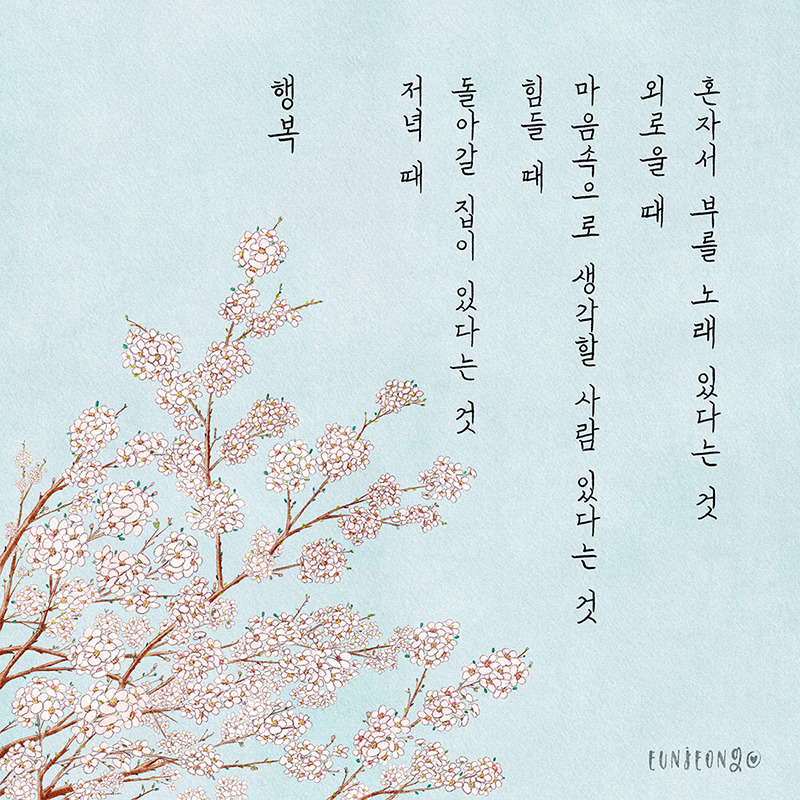 행복
저녁 때
돌아갈 집이 있다는 것
힘들 때
마음속으로 생각할 사람 있다는 것
외로울 때
혼자서 부를 노래 있다는 것